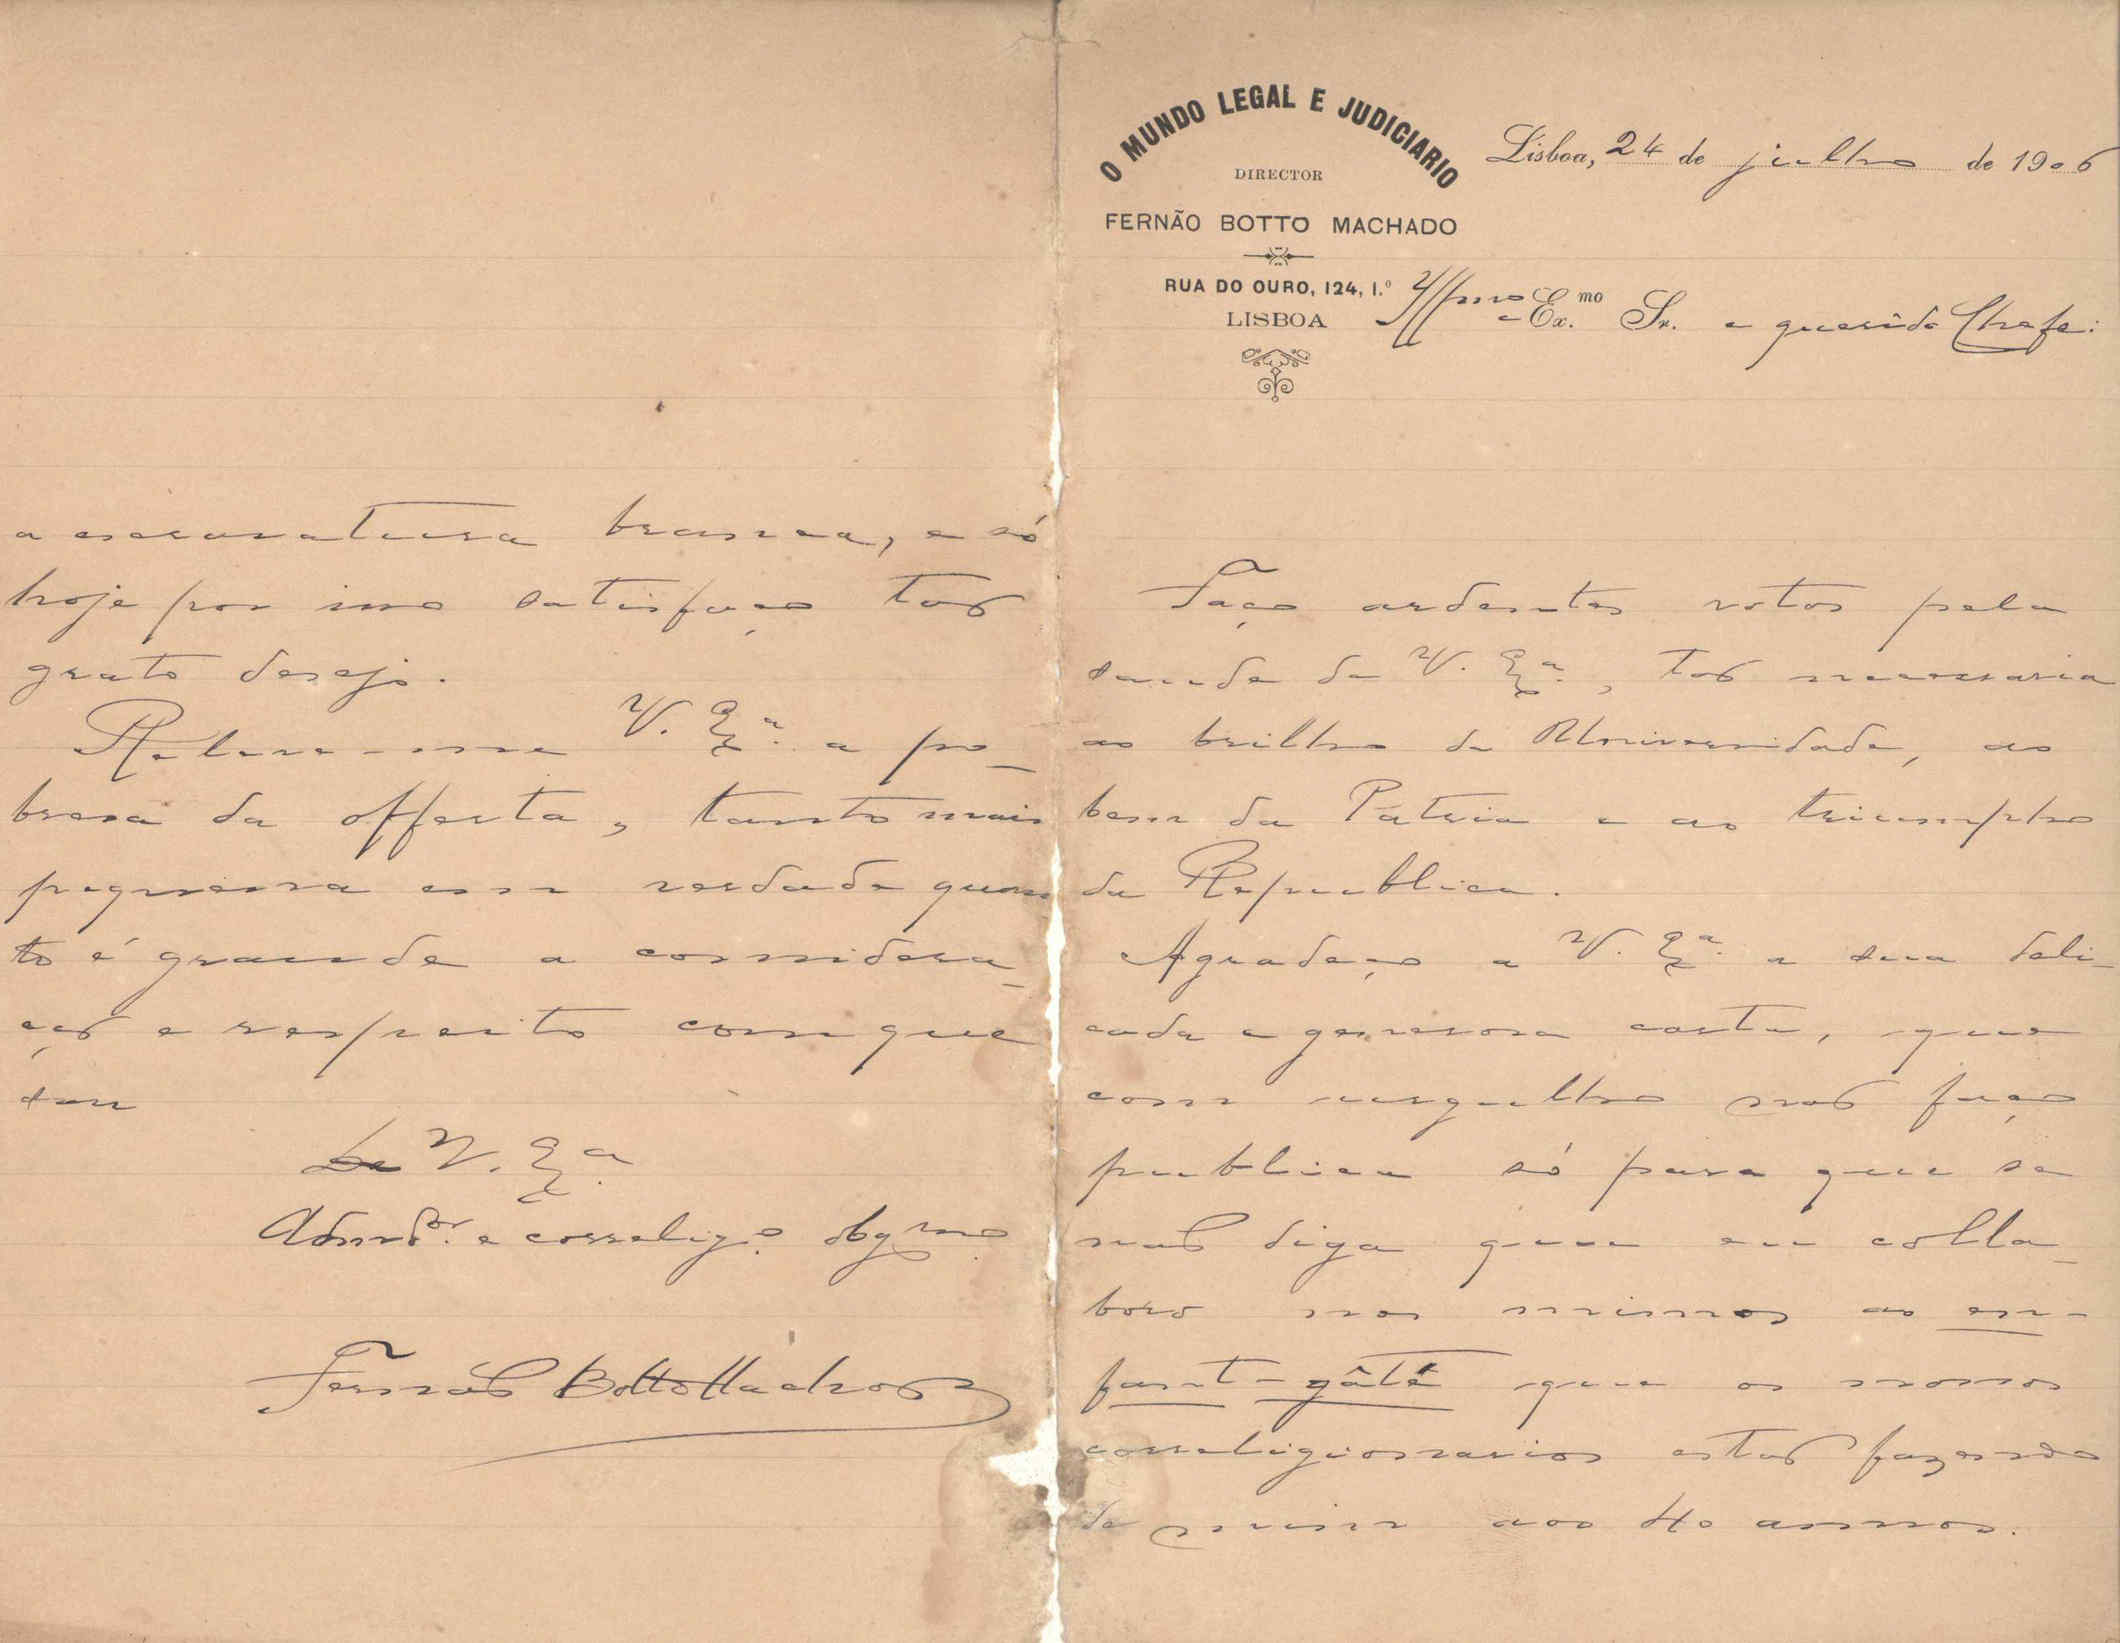 O MUNDO LEGAL E JUDICIARIO
DIRECTOR
FERNÃO BOTTO MACHADO
RUA DO OURO, 124, 1.º
LISBOA
Lisboa, 24 de julho de 1906
Illmo e Ex.mo Sr. e querido Chefe:
Faço ardentes votos pela
saude de V. Exª., tão necessaria
ao brilho da Universidade, ao
bem da Pátria e ao triumpho
da Republica.
Agradeço a V. Exª. a sua deli-
cada e generosa carta, que
com orgulho não faço
publica só para que se
não diga que eu colla-
boro nos mimos ao en-
fant-gâté que os nossos
correligionarios estão fazendo
de mim aos 40 annos.
a escravatura branca, e só
hoje por isso satisfaço tão
grato desejo.
Releve-me V. Exª. a po-
breza da offerta, tanto mais
pequena em verdade quan
to é grande a considera-
ção e respeito com que
sou
De V. Exª.
Admdor. e correligº. obgmo.
Fernão Botto Machado